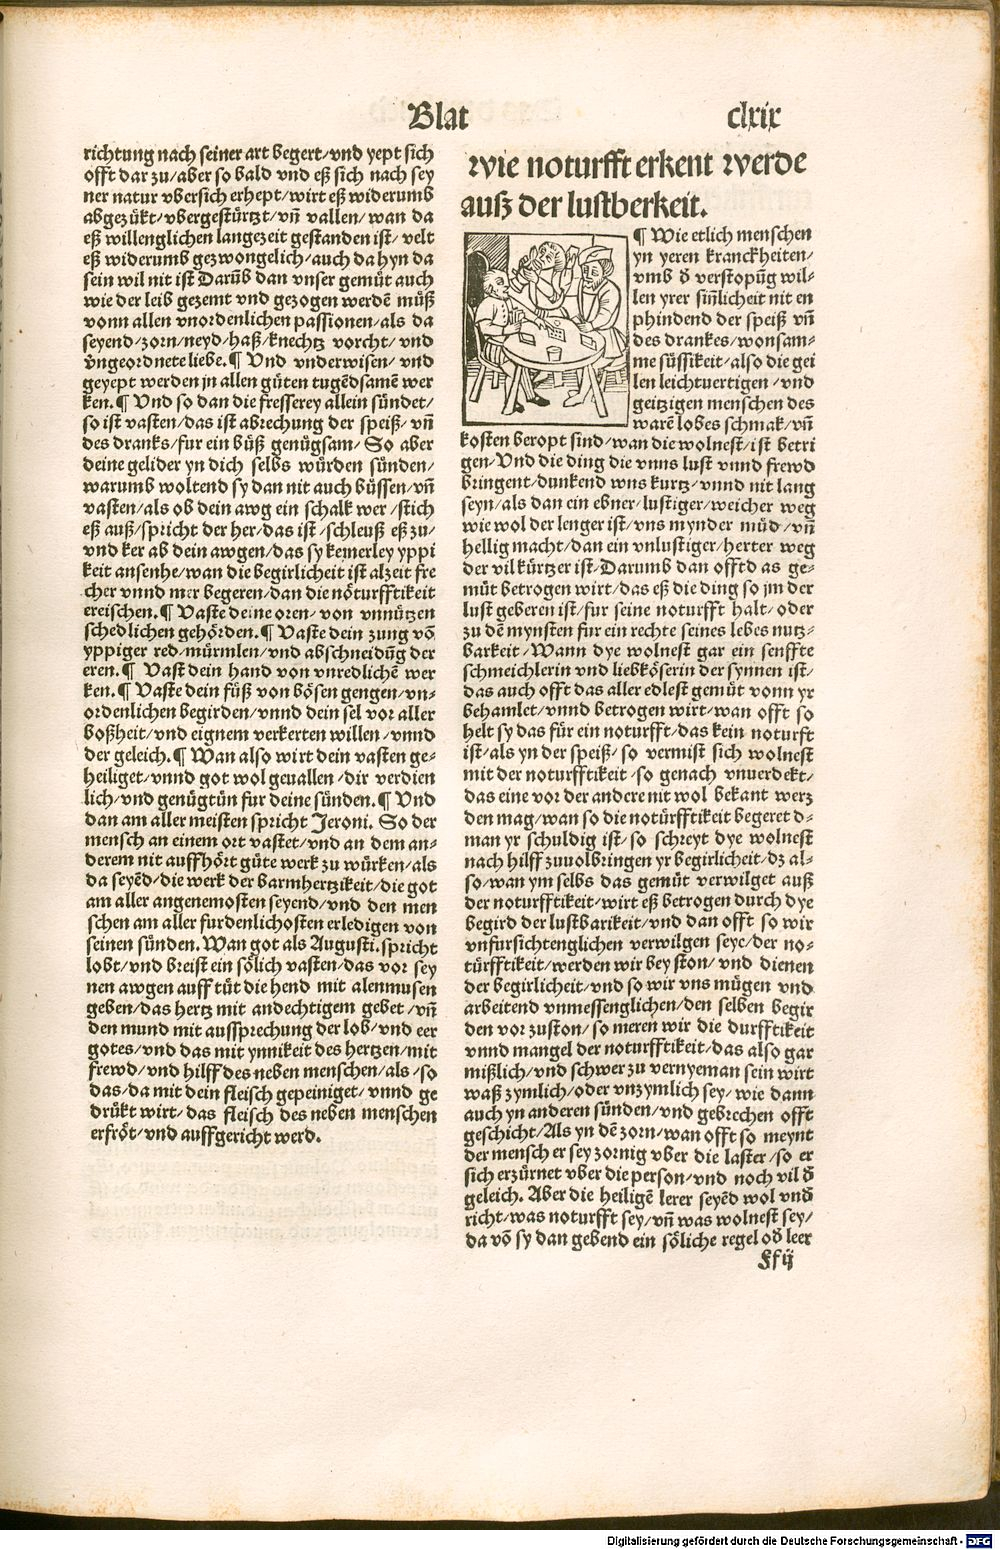 Blat clxix
richtung nach seiner art begert/vnd yept sich
offt dar zu/aber so bald vnd eß sich nach sey
ner natur vbersich erhept/wirt eß widerumb
abgezükt/vbergestürtzt/vn̄ vallen/wan da
eß willenglichen langezeit gestanden ist/velt
eß widerumb gezwongelich/auch da hyn da
sein wil nit ist Darūb dan vnser gemüt auch
wie der leib gezemt vnd gezogen werdē müß
vonn allen vnordenlichen passionen/als da
seyend/zorn/neyd/haß/knechtz vorcht/vnd
vngeordnete liebe.¶ Vnd vnderwisen/vnd
geyept werden jn allen güten tugēdsamē wer
ken.¶ Vnd so dan die fresserey allein sündet/
so ist vasten/das ist abrechung der speiß/vn̄
des dranks/fur ein büß genügsam/So aber
deine gelider yn dich selbs würden sünden/
warumb woltend sy dan nit auch büssen/vn̄
vasten/als ob dein awg ein schalk wer/stich
eß auß/spricht der her/das ist/schleuß eß zu/
vnd ker ab dein awgen/das sy keinerley yppi
keit ansenhe/wan die begirlicheit ist alzeit fre
cher vnnd mer begeren/dan die nöturfftikeit
ereischen.¶ Vaste deine oren/von vnnützen
schedlichen gehörden.¶ Vaste dein zung vō
yppiger red/mürmlen/vnd abschneidūg der
eren.¶ Vast dein hand von vnredlichē wer
ken.¶ Vaste dein füß von bösen gengen/vn⸗
ordenlichen begirden/vnnd dein sel vor aller
boßheit/vnd eignem verkerten willen/vnnd
der geleich.¶ Wan also wirt dein vasten ge⸗
heiliget/vnnd got wol geuallen/dir verdien
lich/vnd genügtün fur deine sünden.¶ Vnd
dan am aller meisten spricht Jeroni. So der
mensch an einem ort vastet/vnd an dem an⸗
derem nit auffhört güte werk zu würken/als
da seyēd/die werk der barmhertzikeit/die got
am aller angenemosten seyend/vnd den men
schen am aller furdenlichosten erledigen von
seinen sünden. Wan got als Augusti.spricht
lobt/vnd breist ein sölich vasten/das vor sey
nen awgen auff tüt die hend mit alenmusen
geben/das hertz mit andechtigem gebet/vn̄
den mund mit aussprechung der lob/vnd eer
gotes/vnd das mit ynnikeit des hertzen/mit
frewd/vnd hilff des neben menschen/als/so
das/da mit dein fleisch gepeiniget/vnnd ge
drükt wirt/das fleisch des neben menschen
erfröt/vnd auffgericht werd.
wie noturfft erkent werde
auß der lustberkeit.
¶ Wie etlich menschen
yn yeren kranckheiten/
vmb đ verstopūg wil⸗
len yrer sin̄licheit nit en
phindend der speiß vn̄
des drankes/wonsam⸗
me süssikeit/also die gei
len leichtuertigen/vnd
geitzigen menschen des
warē lobes schmak/vn̄
kosten beropt sind/wan die wolnest/ist betri
gen/Vnd die ding die vnns lust vnnd frewd
bringent/dunkend wns kurtz/vnnd nit lang
seyn/als dan ein ebner/lustiger/weicher weg
wie wol der lenger ist/vns mynder müd/vn̄
hellig macht/dan ein vnlustiger/herter weg
der vil kürtzer ist/Darumb dan offtd as ge⸗
müt betrogen wirt/das eß die ding so jm der
lust geberen ist/fur seine noturfft halt/oder
zu dē mynsten fur ein rechte seines lebes nutz⸗
barkeit/Wann dye wolnest gar ein senffte
schmeichlerin vnd liebköserin der synnen ist/
das auch offt das aller edlest gemüt vonn yr
behamlet/vnnd betrogen wirt/wan offt so
helt sy das für ein noturfft/das kein noturft
ist/als yn der speiß/so vermist sich wolnest
mit der noturfftikeit/so genach vnuerdekt/
das eine vor der andere nit wol bekant werz
den mag/wan so die notürfftikeit begeret d⸗
man yr schuldig ist/so schreyt dye wolnest
nach hilff zuuolbringen yr begirlicheit/dz al⸗
so/wan ym selbs das gemüt verwilget auß
der noturfftikeit/wirt eß betrogen durch dye
begird der lustbarikeit/vnd dan offt so wir
vnfursichtenglichen verwilgen seye/der no⸗
türfftikeit/werden wir bey ston/vnd dienen
der begirlicheit/vnd so wir vns mügen vnd
arbeitend vnmessenglichen/den selben begir
den vor zuston/so meren wir die durfftikeit
vnnd mangel der noturfftikeit/das also gar
mißlich/vnd schwer zu vernyeman sein wirt
waß zymlich/oder vnzymlich sey/wie dann
auch yn anderen sünden/vnd gebrechen offt
geschicht/Als yn dē zorn/wan offt so meynt
der mensch er sey zornig vber die laster/so er
sich erzürnet vber die person/vnd noch vil đ
geleich. Aber die heiligē lerer seyēd wol vnđ
richt/was noturfft sey/vn̄ was wolnest sey/
da vō sy dan gebend ein söliche regel ođ leer
Ff ij
Digitalisierung gefördert durch die Deutsche Forschungsgemeinschaft - DFG